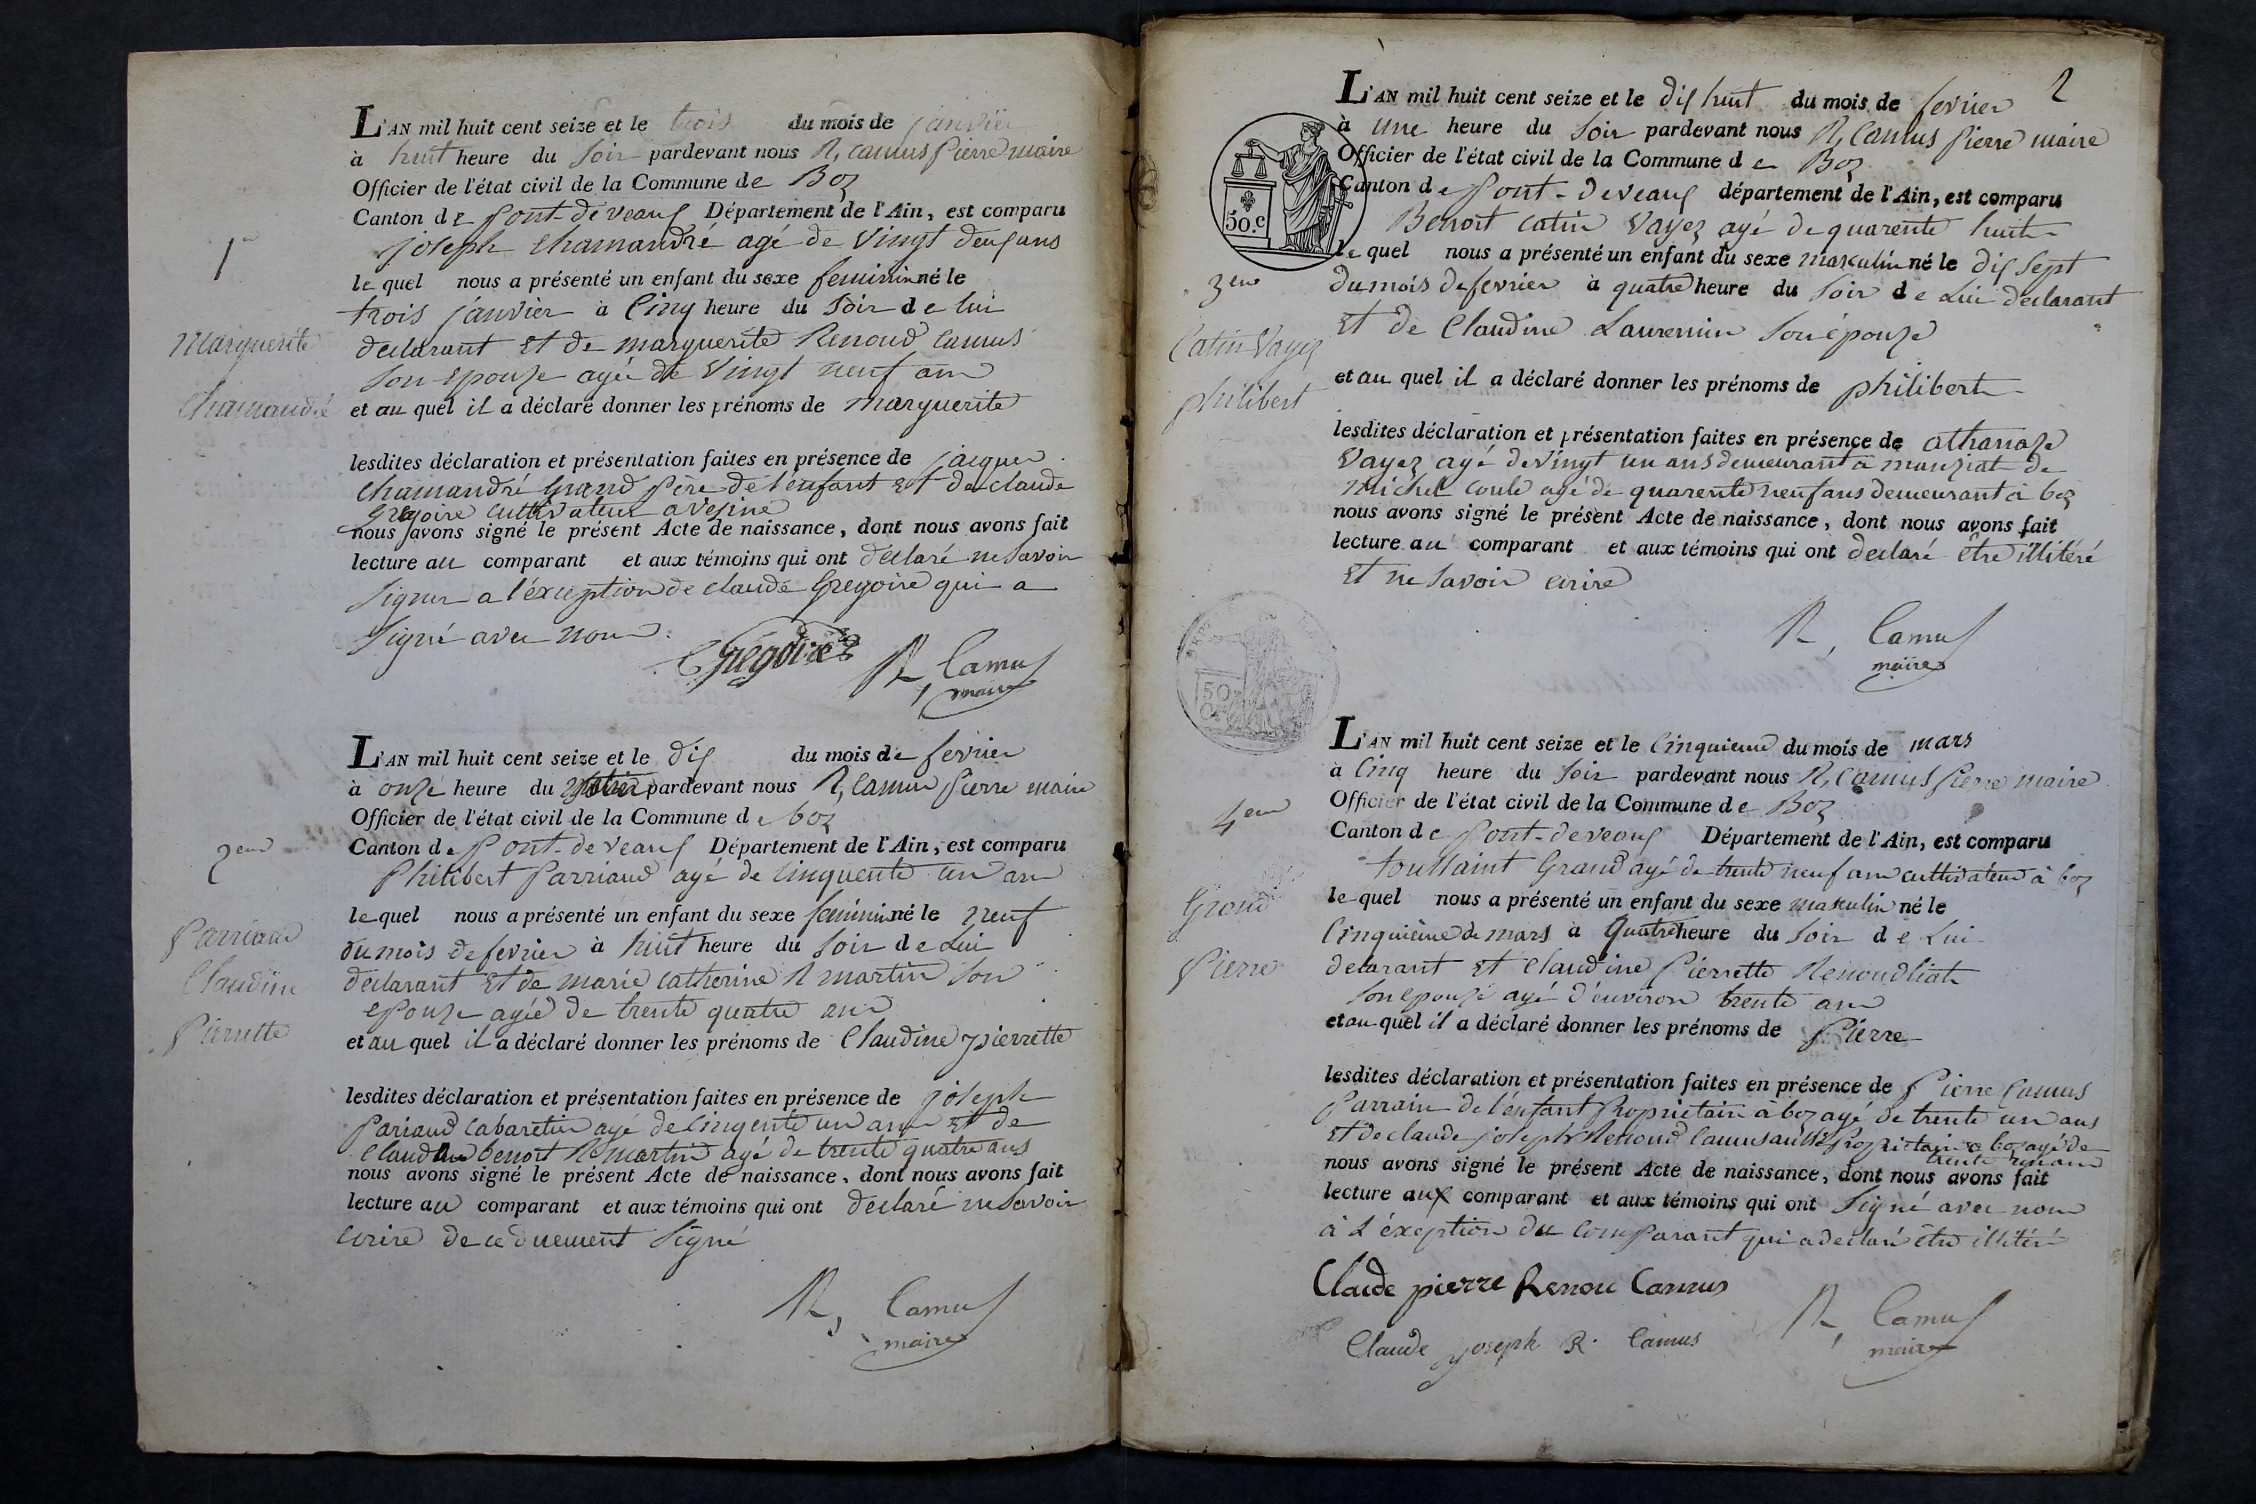 1er
Marguerite
Chamandré
L'AN mil huit cent seize et le trois du mois de janvier
à huit heure du Soir pardevant nous R, camus Pierre maire
Officier de l'état civil de la Commune de Boz
Canton de Pont-de veaux Département de l'Ain, est comparu
joseph Chamandré agé de Vingt deux ans
le quel nous a présenté un enfant du sexe feminin né le
trois janvier à Cinq heure du Soir de lui
declarant Et de marguerite Renoud Camus
Son epouze agée de Vingt neuf ans
et au quel il a déclaré donner les prénoms de marguerite
lesdites déclaration et présentation faites en présence de jacques
chamandré Grand Père de l'enfant Et de claude
gregoire cultivateur avézine
nous avons signé le présent Acte de naissance, dont nous avons fait
lecture au comparant et aux témoins qui ont déclaré ne Savoir
Signer a l'éxception de claude Gregoire qui a
Signé avec nous
Gregoire R, Camus
maire
2eme
Parriaud
Claudine
Pierrette
L'AN mil huit cent seize et le dix du mois de fevrier
à onze heure du pardevant nous R, Camus Pierre maire
Officier de l'état civil de la Commune de boz
Canton de Pont-de veaux Département de l'Ain, est comparu
Philibert Parriaud agé de Cinquente un ans
le quel nous a présenté un enfant du sexe feminin né le neuf
du mois de fevrier à huit heure du Soir de Lui
declarant Et de marie catherine R martin Son
epouze agée de trente quatre ans
et au quel il a déclaré donner les prénoms de Claudine pierrette
lesdites déclaration et présentation faites en présence de joseph
Pariaud Cabaretier agé de Cinqente un ans Et de
Claude benoit R martin agé de trente quatre ans
nous avons signé le présent Acte de naissance, dont nous avons fait
lecture au comparant et aux témoins qui ont declaré ne Savoir
ecrire de ce duement Signé
R, Camus
maire
2
50.c
3eme
Catin Vayez
philibert
L'AN mil huit cent seize et le dix huit du mois de fevrier
à Une heure du Soir pardevant nous R, Camus Pierre maire
Officier de l'état civil de la Commune de Boz
Canton de Pont-de veaux département de l'Ain, est comparu
Benoit catin Vayez agé de quarente huit
le quel nous a présenté un enfant du sexe maskulin né le dix Sept
du mois de fevrier à quatre heure du Soir de Lui declarant
Et de Claudine Laurensin Son épouze
et au quel il a déclaré donner les prénoms de philibert
lesdites déclaration et présentation faites en présence de athanaze
Vayez agé de Vingt un ans demeurant à manziat de
Michel coulé agé de quarente neuf ans demeurant à boz
nous avons signé le présent Acte de naissance, dont nous avons fait
lecture au comparant et aux témoins qui ont declaré être illitéré
Et ne Savoir ecrire
R, Camus
maire
50
4eme
Grand
Pierre
L'AN mil huit cent seize et le Cinquieme du mois de mars
à Cinq heure du Soir pardevant nous R, Camus Pierre maire
Officier de l'état civil de la Commune de Boz
Canton de Pont-de veaux Département de l'Ain, est comparu
toussaint Grand agé de trente neuf ans cultivateur à boz
le quel nous a présenté un enfant du sexe maskulin né le
Cinquième de mars à Quatre heure du Soir de Lui
declarant Et Claudine Pierrette Renoudliat
Son epouze agé d'environ trente ans
et au quel il a déclaré donner les prénoms de Pierre
lesdites déclaration et présentation faites en présence de Pierre Camus
Parrain de l'enfant Proprietaire à boz agé de trente un ans
Et de claude joseph Renoud Camus aussi Proprietaire a boz agé de
trente
nous avons signé le présent Acte de naissance, dont nous avons fait
lecture aux comparant et aux témoins qui ont Signé avec nous
à L'éxception du Comparant qui a declaré être illitéré
Claude pierre Renou Camus
Claude joseph R. Camus R, Camus
maire